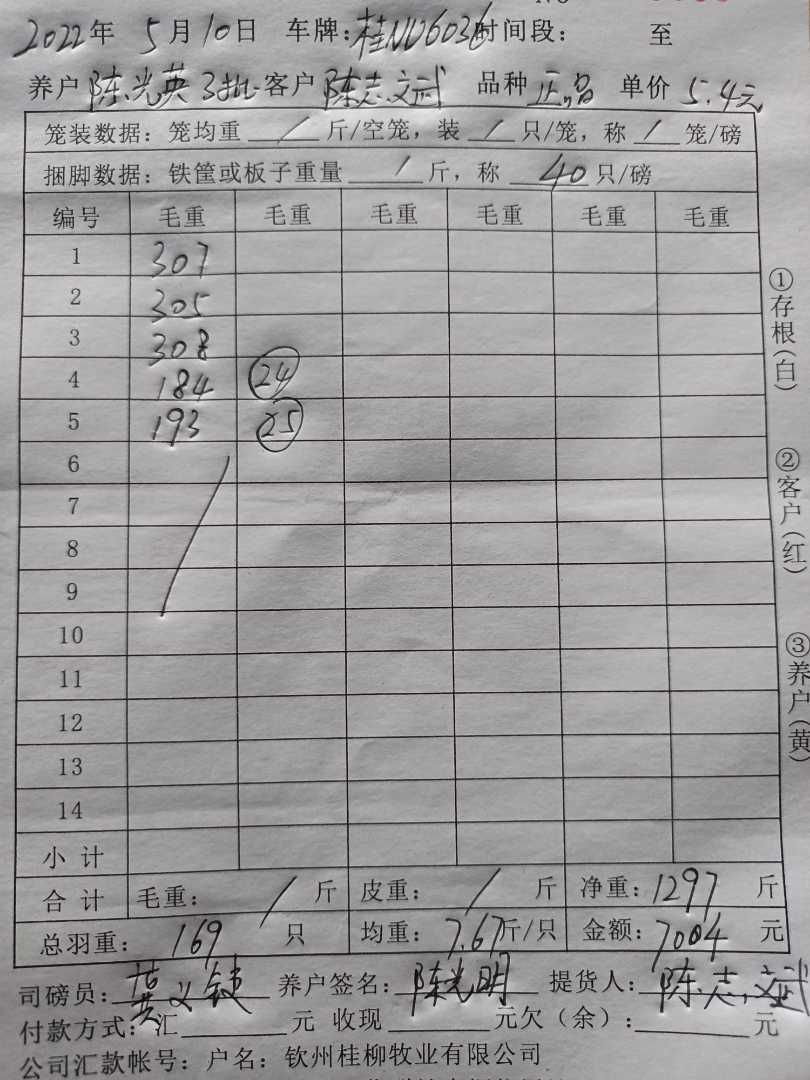 2022年 5月10日 车牌:桂NU6036 时间段: 至
养户 陈光英3批 客户 陈志文武 品种 正品 单价 5.4元
笼装数据: 笼均重 / 斤/空笼, 装 / 只/笼, 称 / 笼/磅
捆脚数据: 铁筐或板子重量 / 斤, 称 40 只/磅
编号 毛重 毛重 毛重 毛重 毛重 毛重
1 307
2 305
3 308
4 184 24
5 193 25
6
7
8
9
10
11
12
13
14
小计
合计 毛重: / 斤 皮重: / 斤 净重: 1297 斤
总羽重: 169 只 均重: 7.67 斤/只 金额: 7004 元
司磅员: 黄义 养户签名: 陈光明 提货人: 陈志文武
付款方式: 汇 元 收现 元欠(余): 元
公司汇款帐号: 户名: 钦州桂柳牧业有限公司
①存根(白)
②客户(红)
③养户(黄)